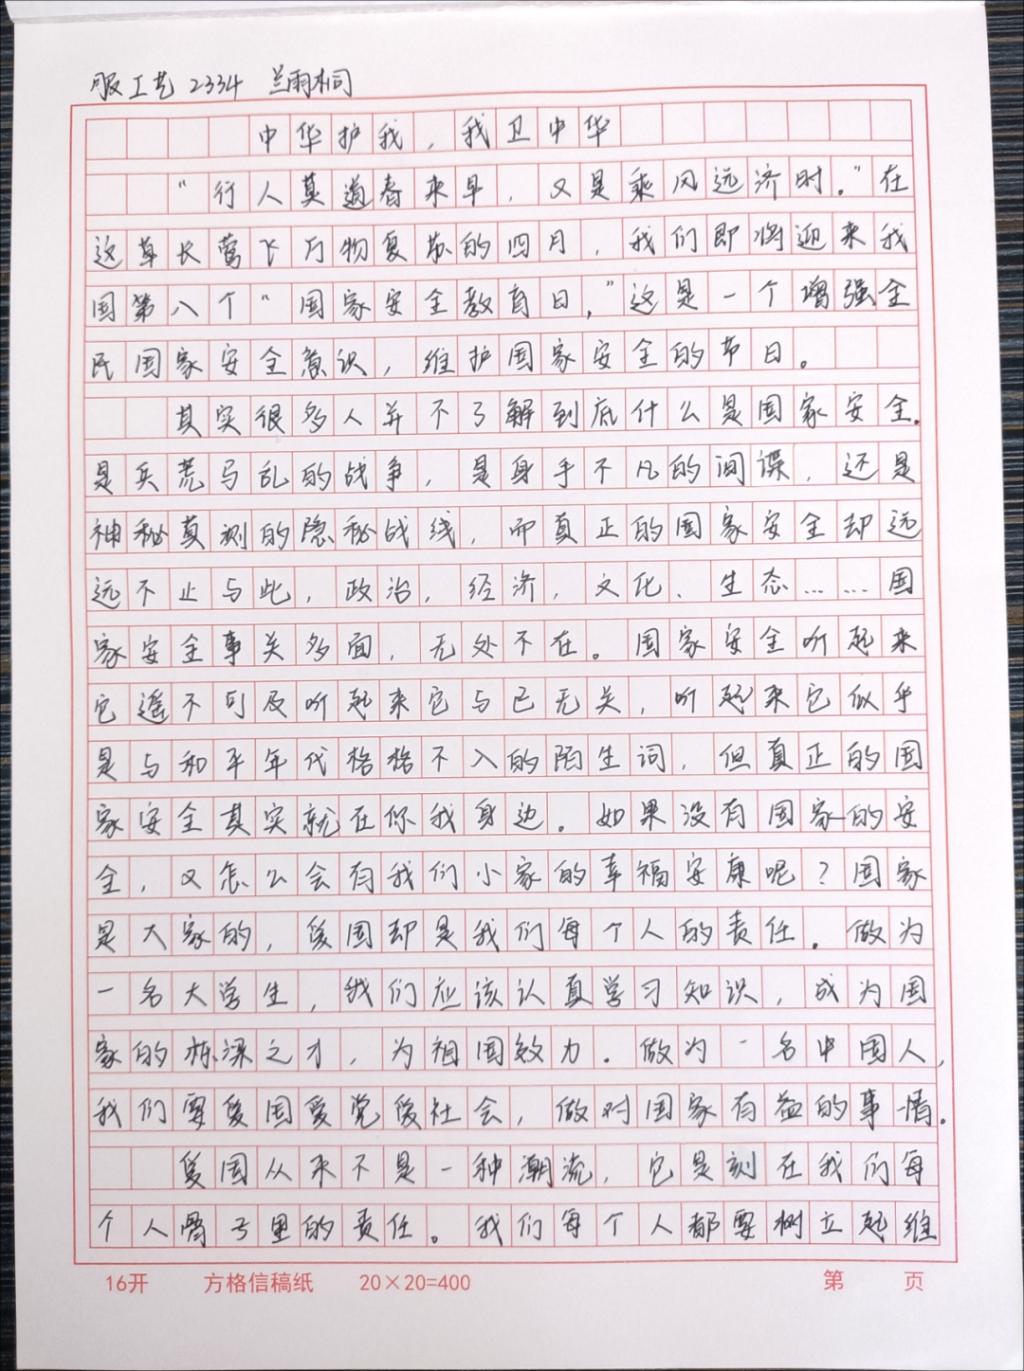 服工艺 2334 兰雨桐
中华护我，我卫中华
“行人莫道春来早，又是乘风远济时。”在
这草长莺飞万物复苏的四月，我们即将迎来我
国第八个“国家安全教育日，”这是一个增强全
民国家安全意识，维护国家安全的节日。
其实很多人并不了解到底什么是国家安全.
是兵荒马乱的战争，是身手不凡的间谍，还是
神秘莫测的隐秘战线，而真正的国家安全却远
远不止与此，政治，经济，文化、生态……国
家安全事关多面，无处不在。国家安全听起来
它遥不可及听起来它与己无关，听起来它似乎
是与和平年代格格不入的陌生词，但真正的国
家安全其实就在你我身边。如果没有国家的安
全，又怎么会有我们小家的幸福安康呢？国家
是大家的，爱国却是我们每个人的责任。做为
一名大学生，我们应该认真学习知识，成为国
家的栋梁之才，为祖国效力。做为一名中国人，
我们要爱国爱党爱社会，做对国家有益的事情.
爱国从来不是一种潮流，它是刻在我们每
个人骨子里的责任。我们每个人都要树立起维
16开 方格信稿纸 20×20=400 第 页